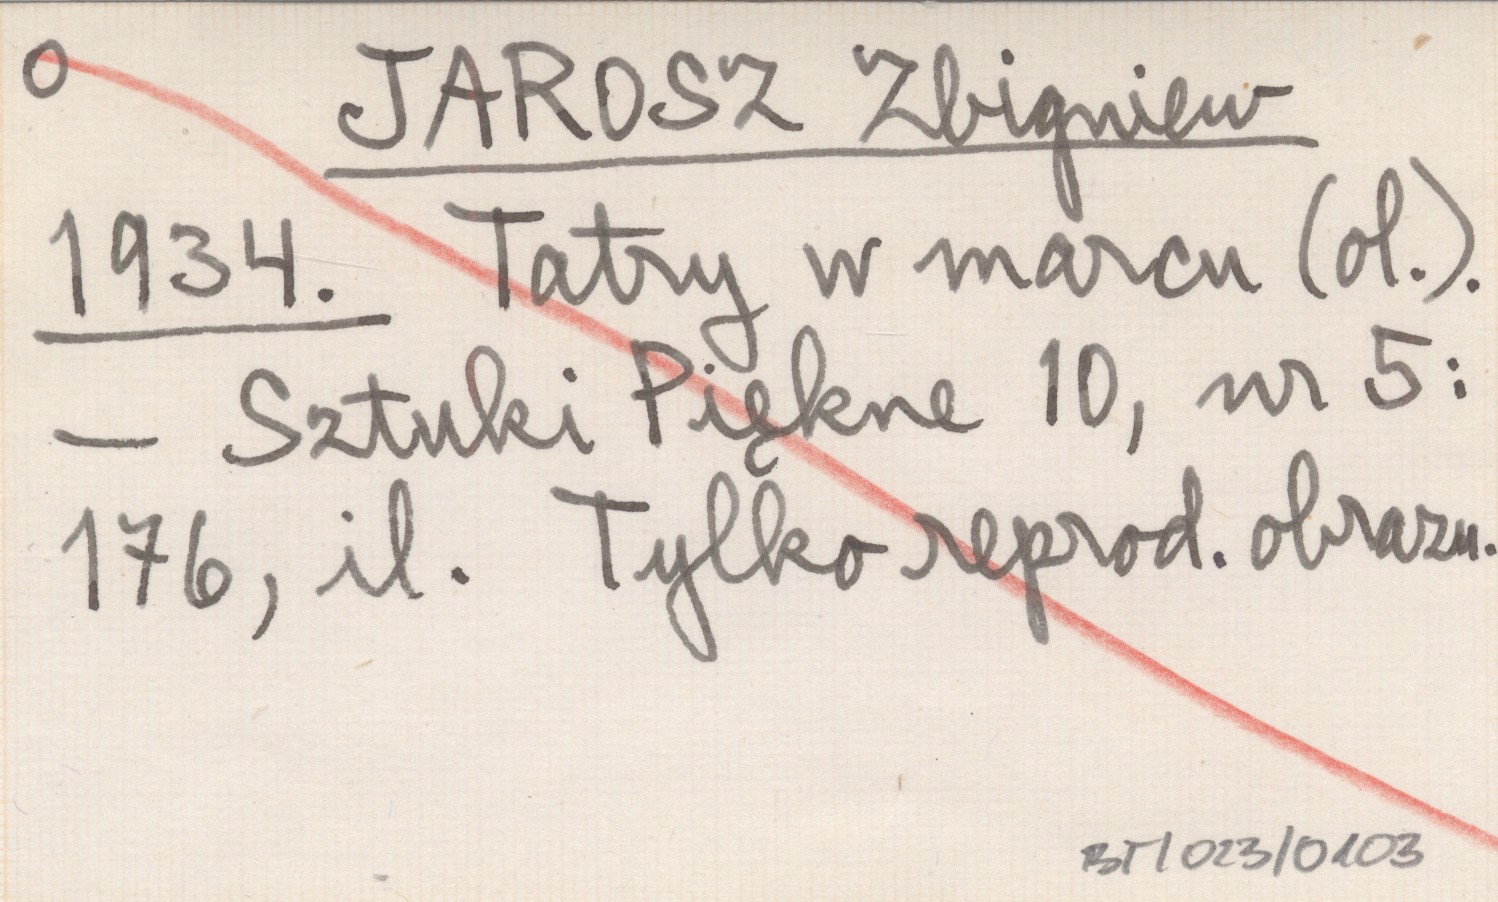 O JAROSZ Zbigniew
1934. Tatry w marcu (ol.).
— Sztuki Piękne 10, nr 5:
176, il. Tylko reprod. obrazu.
BT/023/0103